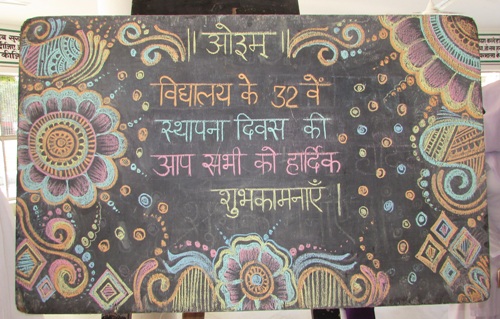 ॥ ओ३म् ॥
विद्यालय के 32 वें
स्थापना दिवस की
आप सभी को हार्दिक
शुभकामनाएँ।